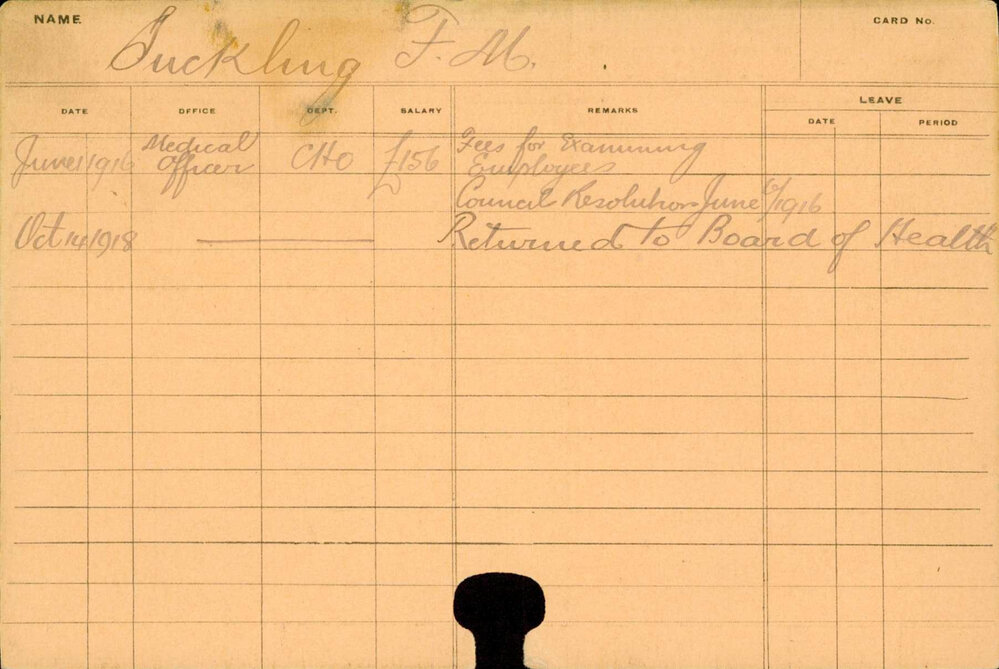 NAME
Suckling F. M.
CARD No.
DATE OFFICE DEPT. SALARY REMARKS LEAVE
DATE PERIOD
June 1 1916 Medical Officer CHO £156 Fees for Examining
Employees
Council Resolution June 6/1916
Oct 14 1918 Returned to Board of Health